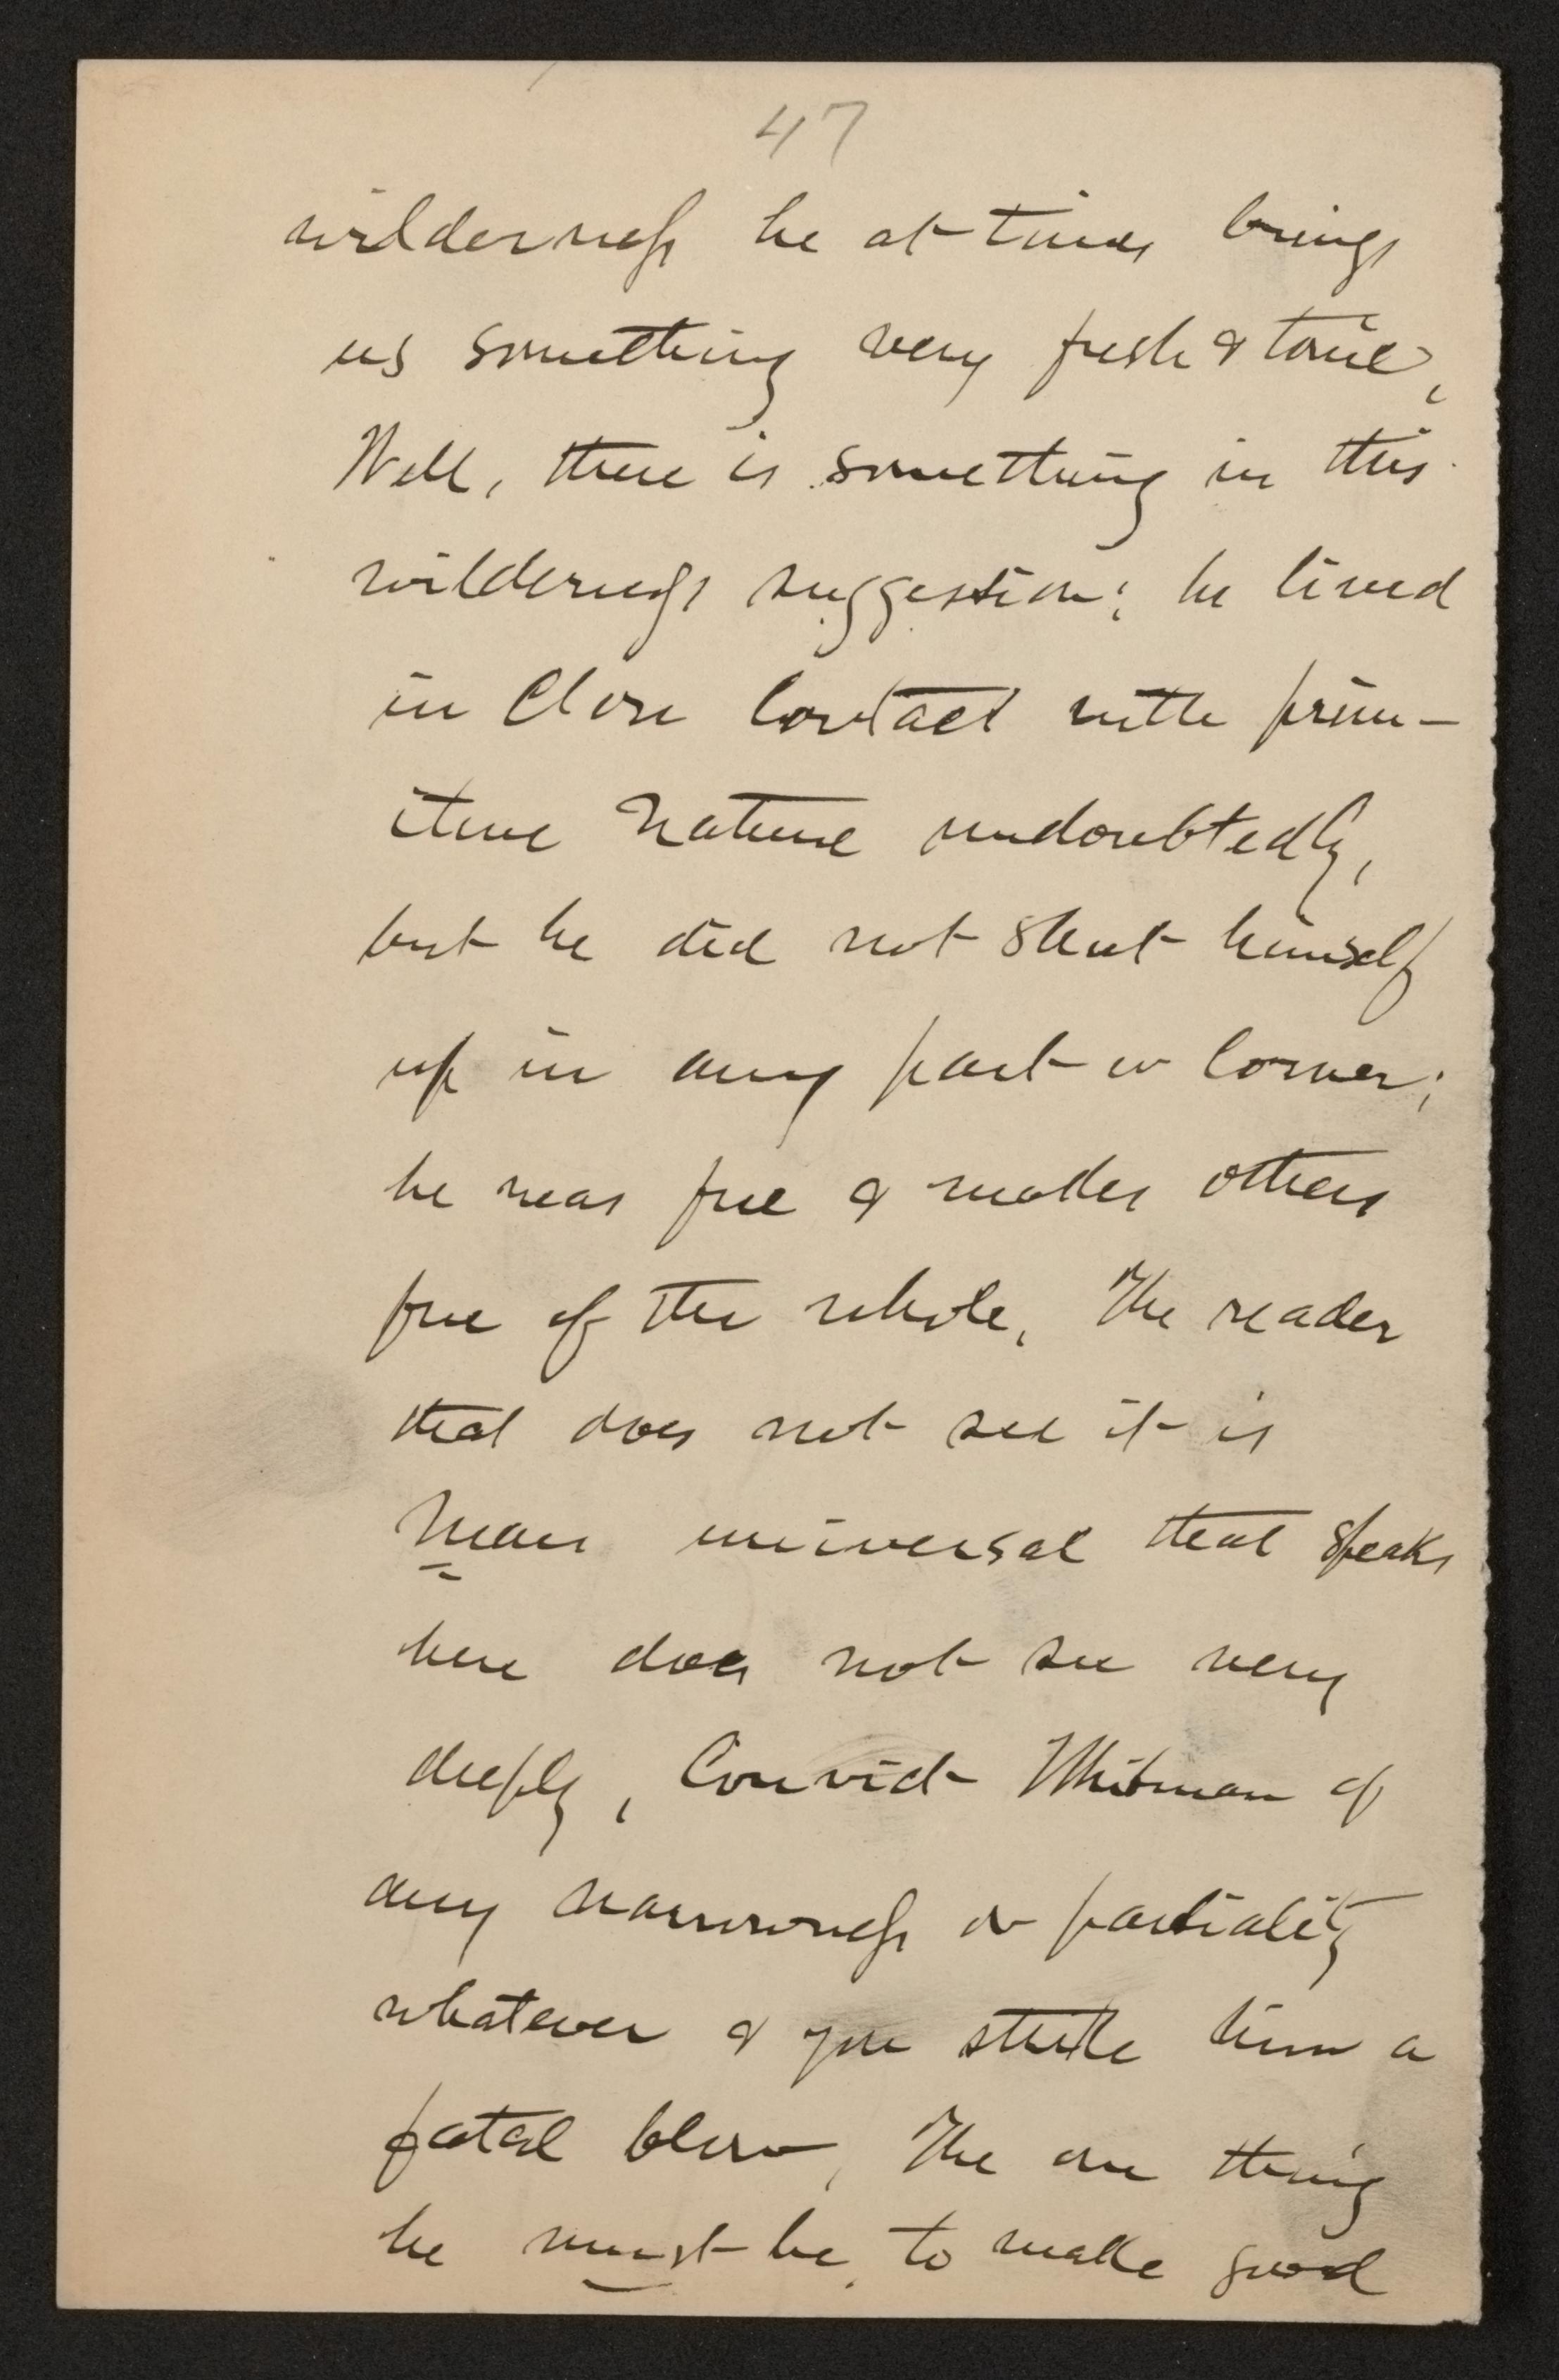 47
wilderness he at times brings
us something very fresh & tonic,
Well, there is something in this
wilderness suggestion; he lived
in close contact with prim-
itive Nature undoubtedly,
but he did not shut himself
up in any part or corner;
he was free & makes others
free of the whole, The reader
that does not see it is
Man universal that speaks
here does not see very
deeply, Convict Whitman of
any narrowness or partiality
whatever & you strike him a
fatal blow, The one thing
he must be, to make good